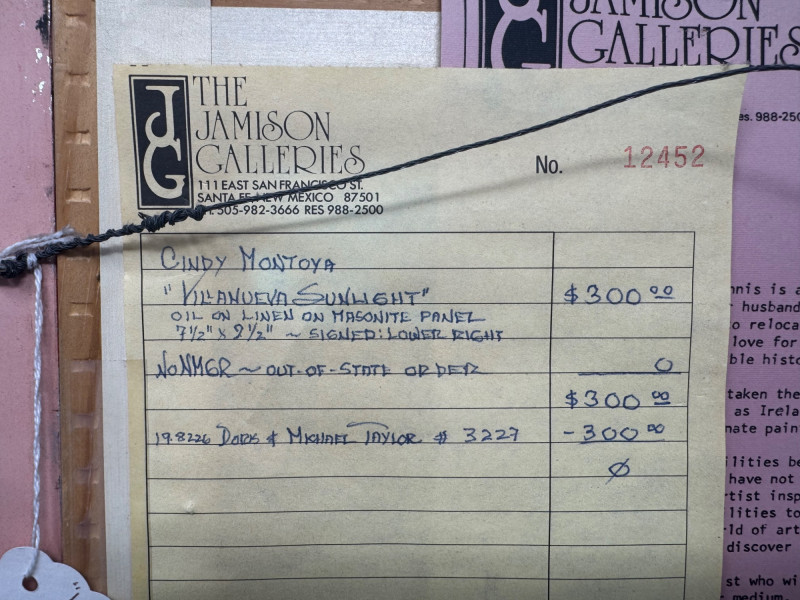 JG
THE
JAMISON
GALLERIES
111 EAST SAN FRANCISCO ST.
SANTA FE, NEW MEXICO 87501
505-982-3666 RES 988-2500
No. 12452
CINDY MONTOYA
"VILLANUEVA SUNLIGHT" $300 00
OIL ON LINEN ON MASONITE PANEL
7 1/2" X 9 1/2" ~ SIGNED: LOWER RIGHT
NO NMGR ~ OUT-OF-STATE ORDER 0
$300 00
19.8226 DORIS & MICHAEL TAYLOR # 3227 -300 00
Ø
JAMISON
GALLERIES
es. 988-250
nnis is a
husband
o reloca
love for
ble histo
taken the
as Irela
nate pain
ilities be
have not
rtist insp
lities to
ld of art
discover
st who wi
medium.